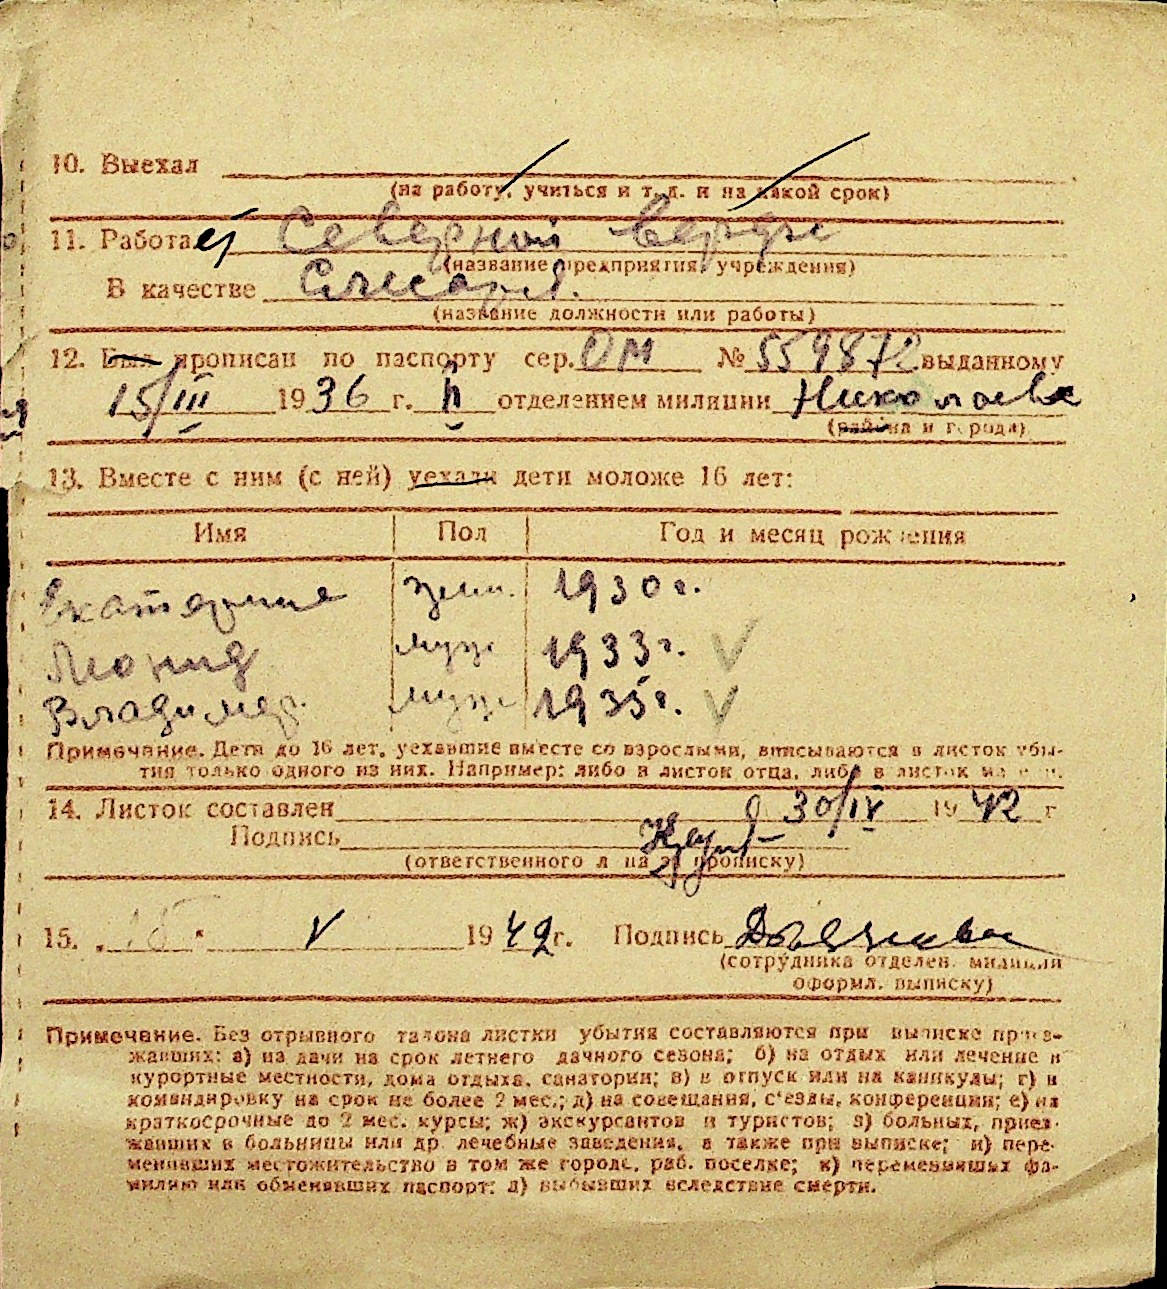 10. Выехал
(на работу, учиться и т. д. и на какой срок)
11. Работает Северной верфи
(название предприятия, учреждения)
В качестве Слесаря.
(название должности или работы)
12. Был прописан по паспорту сер. ОМ № 559872 выданному
15/III 1936 г. II отделением милиции Николаева
(района и города)
13. Вместе с ним (с ней) уехали дети моложе 16 лет:
Имя Пол Год и месяц рождения
Екатерина жен. 1930 г.
Леонид муж 1933 г. V
Владимир. муж. 1935 г. V
Примечание. Дети до 16 лет, уехавшие вместе со взрослыми, вписываются в листок убы-
тия только одного из них. Например: либо в листок отца, либо в листок
14. Листок составлен 30/IV 1942 г
Подпись
(ответственного лица за прописку)
15. 15 V 1942 г. Подпись
(сотрудника отделен. милиции
оформл. выписку)
Примечание. Без отрывного талона листки убытия составляются при выписке приез-
жавших: а) на дачи на срок летнего дачного сезона; б) на отдых или лечение в
курортные местности, дома отдыха, санатории; в) в отпуск или на каникулы; г) в
командировку на срок не более 2 мес.; д) на совещания, с'езды, конференции; е) на
краткосрочные до 2 мес. курсы; ж) экскурсантов и туристов; з) больных, приез-
жавших в больницы или др. лечебные заведения, а также при выписке; и) пере-
менивших местожительство в том же городе, раб. поселке; к) переменивших фа-
милию или обменявших паспорт; л) выбывших вследствие смерти.